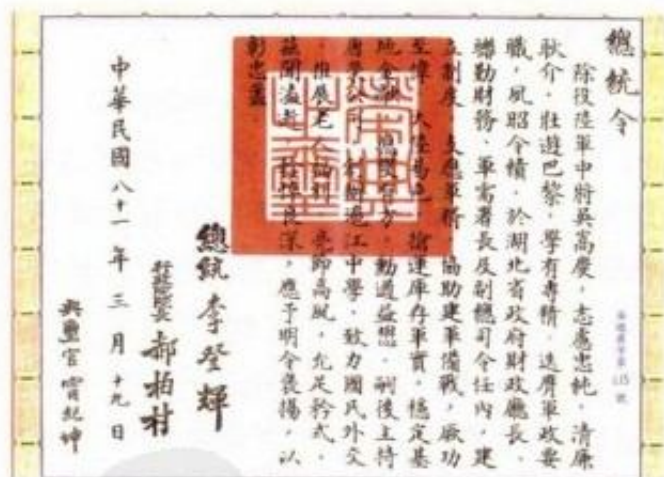 總統令
除役陸軍中將吳嵩慶，志慮忠純，清廉
耿介，壯遊巴黎，學有專精，迭膺軍政要
職，夙昭令績，於湖北省政府財政廳長、
聯勤財務、軍需署長及副總司令任內，建
立制度，支應軍需，協助建軍備戰，厥功
至偉，大陸易色，搶運庫存軍實，穩定基
地金融，籌 有方，勳 益懋，嗣後主持
唐榮公司，創辦滬江中學，致力國民外交
，推展老人福利，亮節高風，允足矜式，
茲聞溘逝，軫悼良深，應予明令褒揚，以
彰忠藎
總統 李登輝
行政院長 郝柏村
中華民國八十一年三月十九日
典璽官 甯紀坤